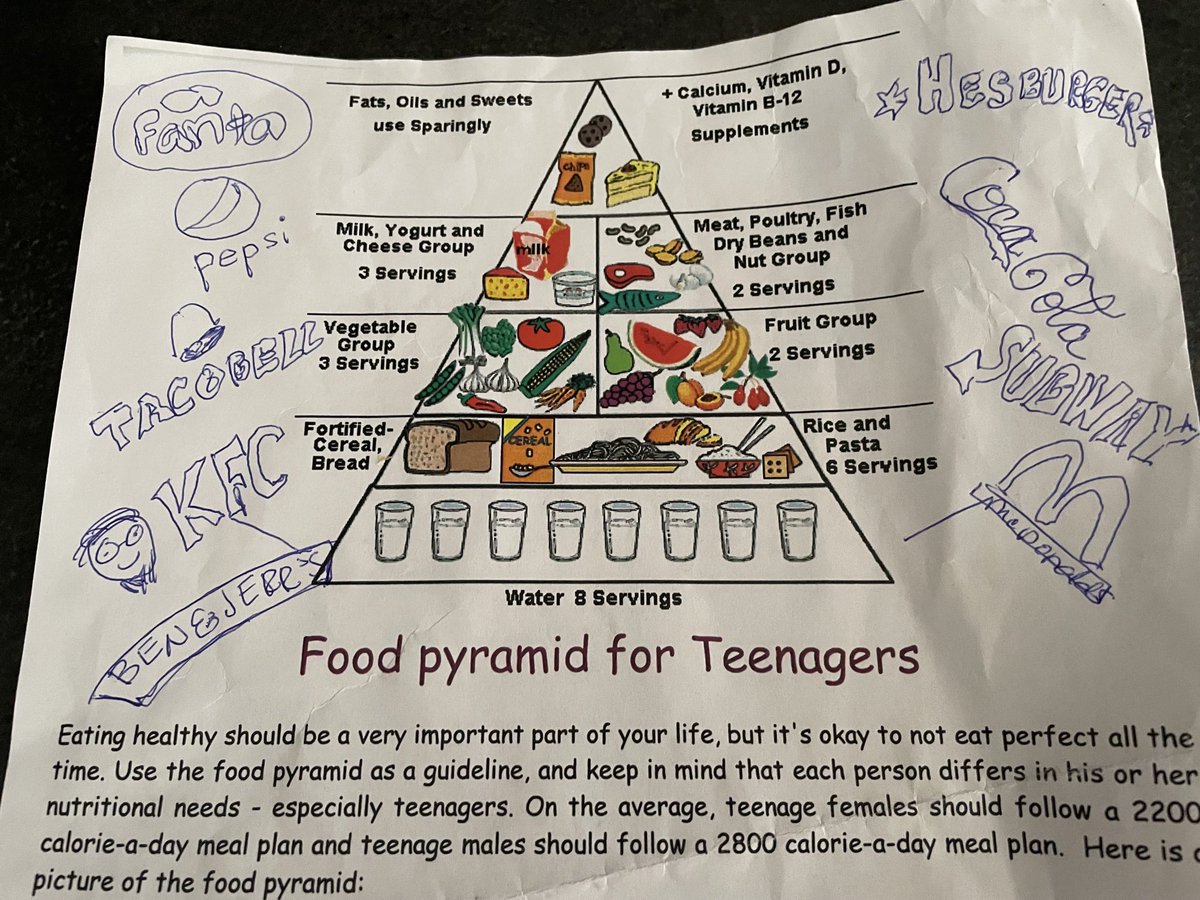 Fanta
pepsi
TACO BELL
KFC
BEN & JERR'S
Fats, Oils and Sweets
use Sparingly
+ Calcium, Vitamin D,
Vitamin B-12
Supplements
CHIPS
Milk, Yogurt and
Cheese Group
3 Servings
milk
Meat, Poultry, Fish
Dry Beans and
Nut Group
2 Servings
Vegetable
Group
3 Servings
Fruit Group
2 Servings
Fortified-
Cereal,
Bread
CEREAL
Rice and
Pasta
6 Servings
Water 8 Servings
HESBURGER
Coca Cola
SUBWAY
McDonald's
Food pyramid for Teenagers
Eating healthy should be a very important part of your life, but it's okay to not eat perfect all the
time. Use the food pyramid as a guideline, and keep in mind that each person differs in his or her
nutritional needs - especially teenagers. On the average, teenage females should follow a 2200
calorie-a-day meal plan and teenage males should follow a 2800 calorie-a-day meal plan. Here is
picture of the food pyramid: